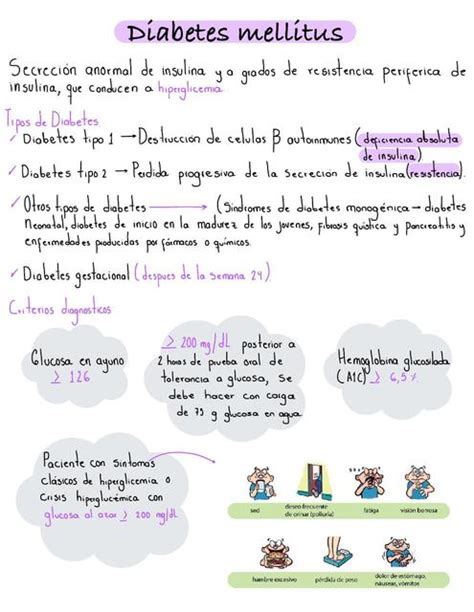 Diabetes mellitus
Secreción anormal de insulina y o grados de resistencia periferica de
insulina, que conducen a hiperglicemia.
Tipos de Diabetes
✓ Diabetes tipo 1 → Destrucción de celulas β autoinmunes (deficiencia absoluta
de insulina)
✓ Diabetes tipo 2 → Perdida progresiva de la secreción de insulina (resistencia).
✓ Otros tipos de diabetes → (Sindromes de diabetes monogénica → diabetes
Neonatal, diabetes de inicio en la madurez de los jovenes, Fibrosis quistica y Pancreatitis y
enfermedades producidas por fármacos o químicos.
✓ Diabetes gestacional (despues de la semana 24)
Criterios diagnosticos
Glucosa en ayuno
≥ 126
≥ 200 mg/dL posterior a
2 horas de prueba oral de
tolerancia a glucosa, Se
debe hacer con carga
de 75 g glucosa en agua
Hemoglobina glucosilada
(A1C) ≥ 6,5%
Paciente con sintomas
clásicos de hiperglicemia o
crisis hiperglucémica con
glucosa al azar ≥ 200 mg/dL
sed
deseo frecuente
de orinar (poliuria)
fatiga
visión borrosa
hambre excesivo
pérdida de peso
dolor de estómago,
náuseas, vómitos